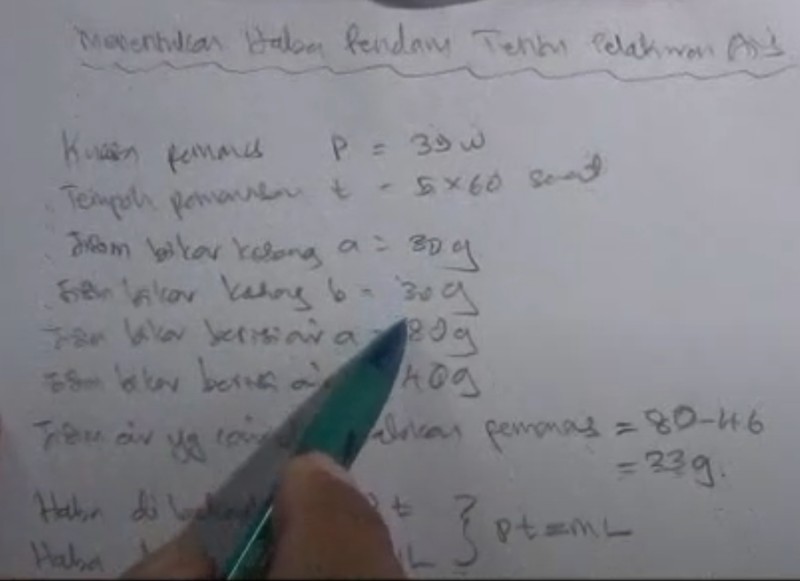 Menentukan Haba Pendam Tentu Pelakuran Ais
Kuasa pemanas P = 39 W
Tempoh pemanasan t = 5 × 60 saat
Jisim bikar kosong a = 30 g
Jisim bikar kosong b = 30 g
Jisim bikar berisi air a 80 g
Jisim bikar berisi 40 g
Jisim air yg pemanas = 80-46
= 33 g.
Haba di t } Pt = mL
Haba L